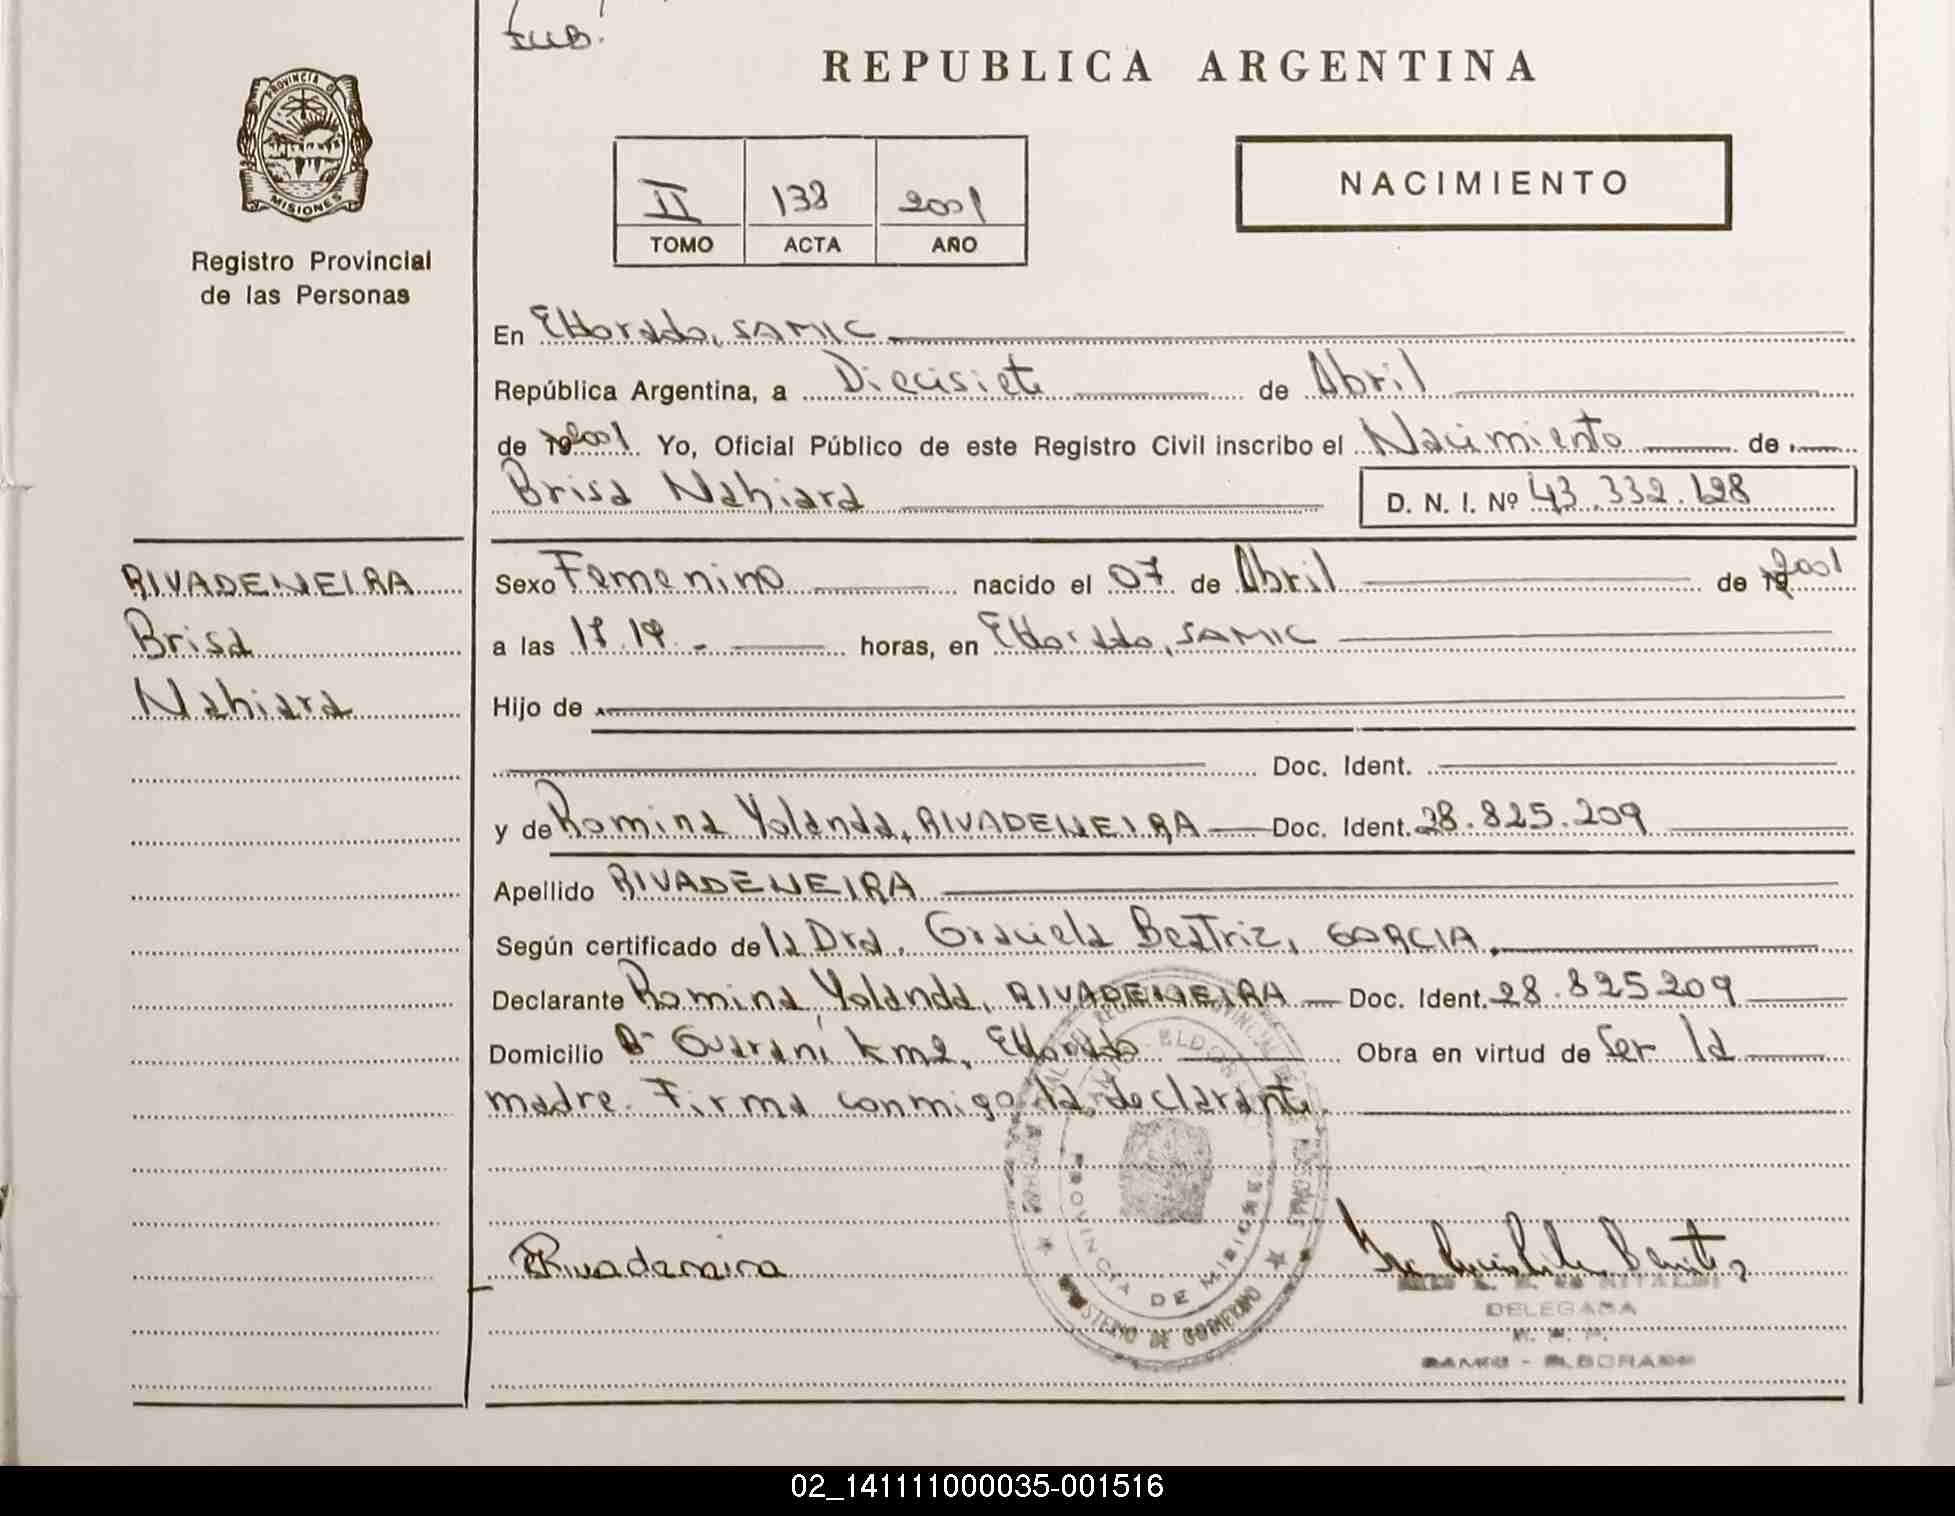 SUB.
REPUBLICA ARGENTINA
PROVINCIA D
MISIONES
Registro Provincial
de las Personas
II 138 2001
TOMO ACTA AÑO
NACIMIENTO
En Eldorado, SAMIC
República Argentina, a Diecisiete de Abril
de 2001 Yo, Oficial Público de este Registro Civil inscribo el Nacimiento de
Brisa Nahiara D. N. I. Nº 43.332.128
RIVADENEIRA
Brisa
Nahiara
Sexo Femenino nacido el 07 de Abril de 2001
a las 17.19.- horas, en Eldorado, SAMIC
Hijo de
Doc. Ident.
y de Romina Yolanda, RIVADENEIRA Doc. Ident. 28.825.209
Apellido RIVADENEIRA
Según certificado de la Dra. Graciela Beatriz, GARCIA
Declarante Romina Yolanda, RIVADENEIRA Doc. Ident. 28.825209
Domicilio Bº Guaraní km2, Eldorado Obra en virtud de Ser la
madre. Firma conmigo la declarante.
PROVINCIA DE MISIONES
MINISTERIO DE GOBIERNO
RRivadeneira
DELEGADA
SAMIC - ELDORADO
02_141111000035-001516